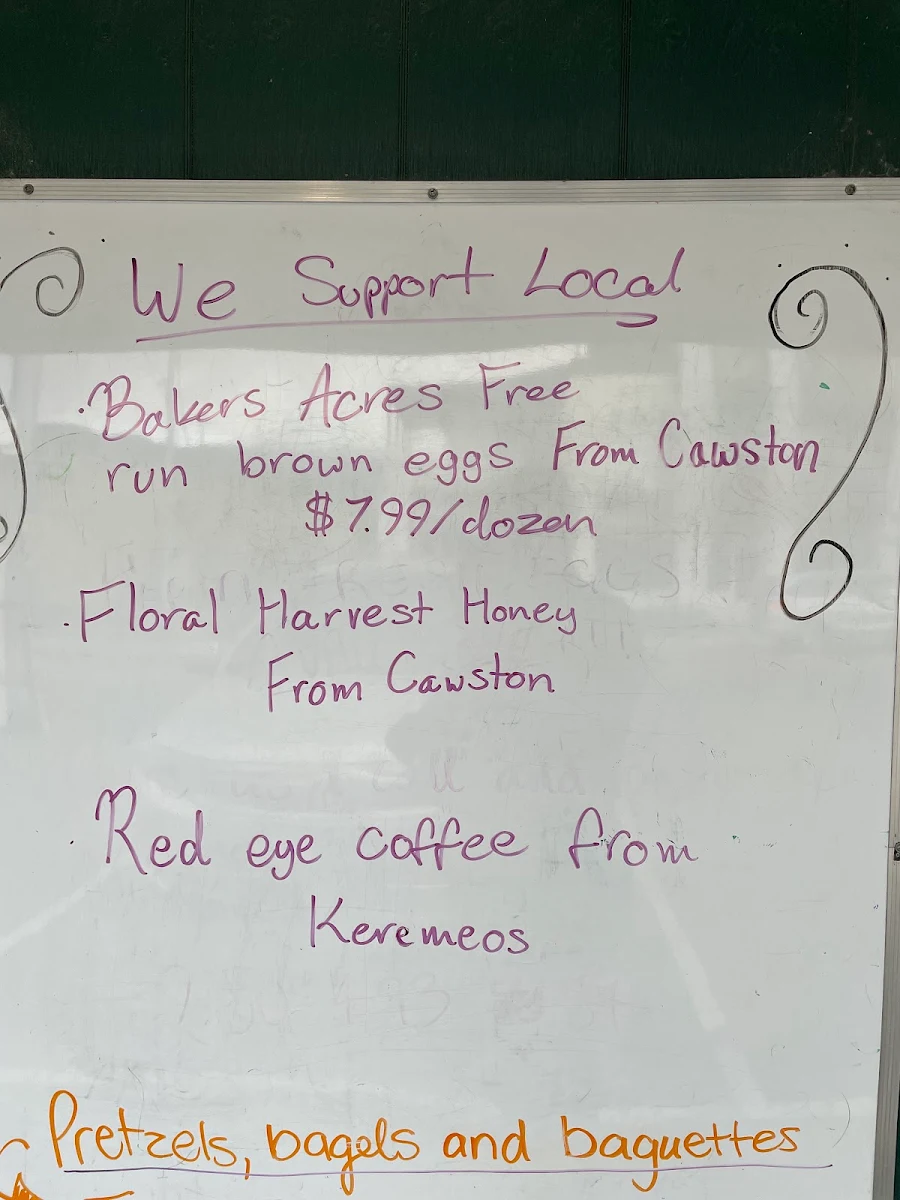 We Support Local
·Bakers Acres Free
run brown eggs From Cawston
$7.99/dozen
·Floral Harvest Honey
From Cawston
·Red eye coffee from
Keremeos
Pretzels, bagels and baguettes